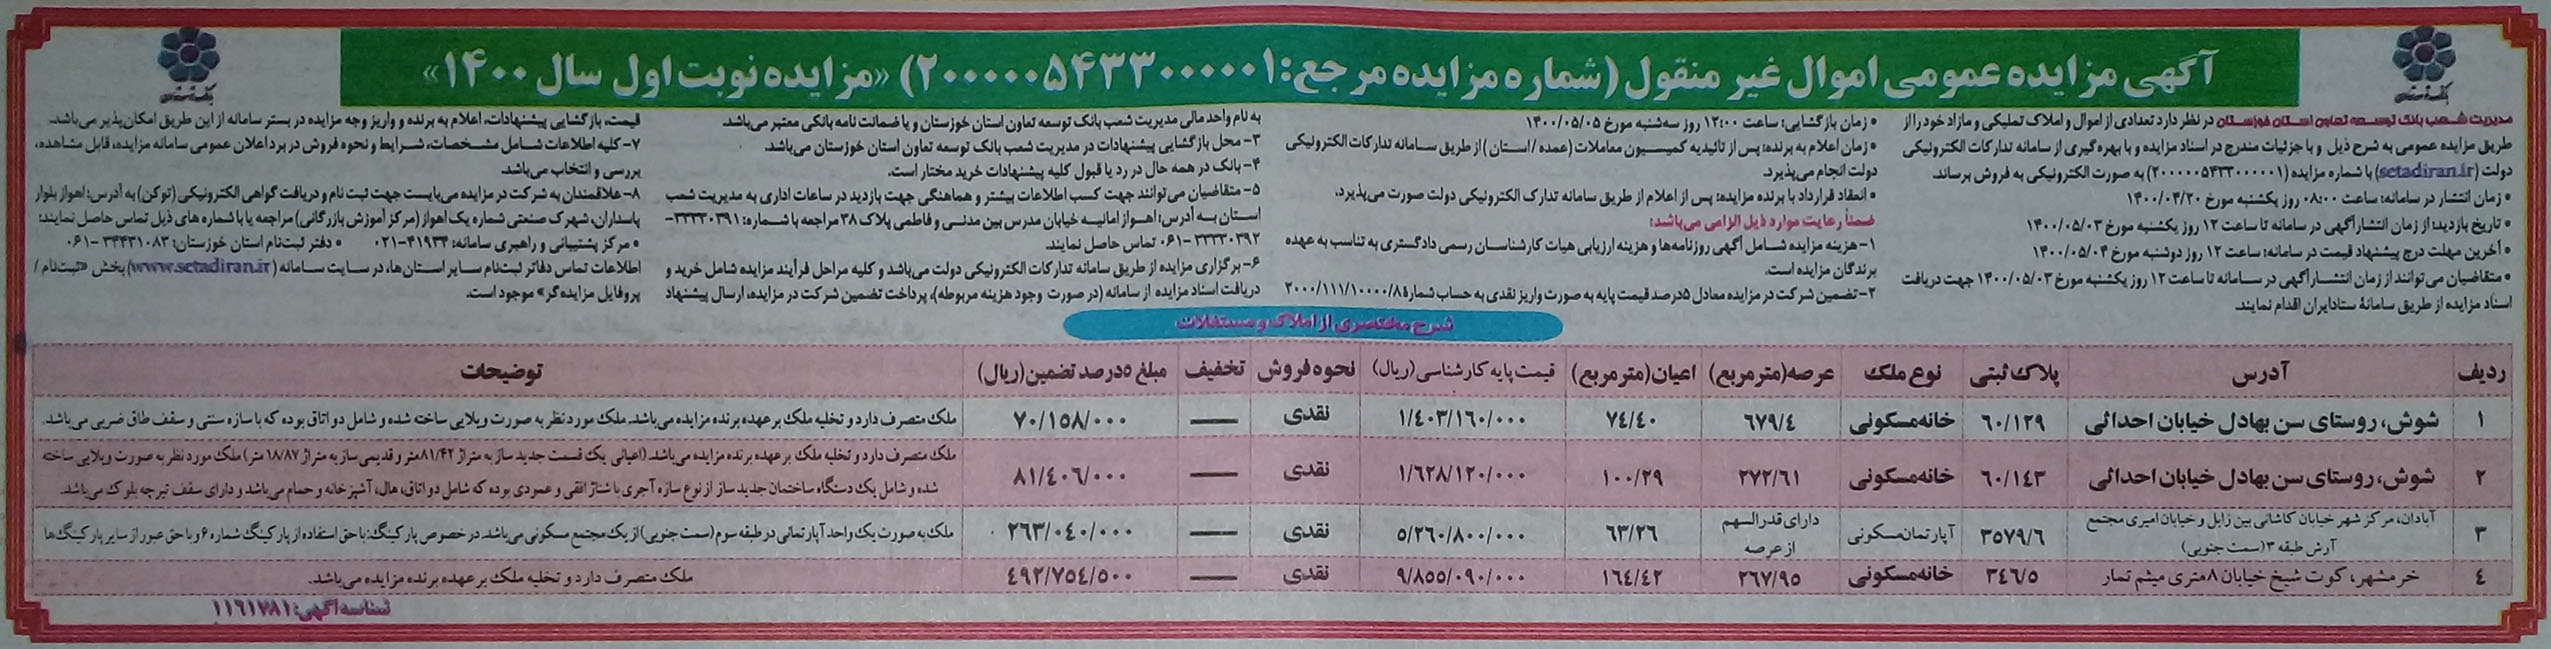 آگهی مزایده عمومی اموال غیر منقول (شماره مزایده مرجع: ۲۰۰۰۰۰۵۴۳۳۰۰۰۰۰۱) «مزایده نوبت اول سال ۱۴۰۰»
مدیریت شعب بانک توسعه تعاون استان خوزستان در نظر دارد تعدادی از اموال و املاک تملیکی و مازاد خود را از
طریق مزایده عمومی به شرح ذیل و با جزئیات مندرج در اسناد مزایده و با بهره گیری از سامانه تدارکات الکترونیکی
دولت (setadiran.ir) با شماره مزایده (۲۰۰۰۰۰۵۴۳۳۰۰۰۰۰۱) به صورت الکترونیکی به فروش برساند.
• زمان انتشار در سامانه: ساعت ۰۸:۰۰ روز یکشنبه مورخ ۱۴۰۰/۰۴/۲۰
• تاریخ بازدید: از زمان انتشار آگهی در سامانه تا ساعت ۱۲ روز یکشنبه مورخ ۱۴۰۰/۰۵/۰۳
• آخرین مهلت درج پیشنهاد قیمت در سامانه: ساعت ۱۲ روز دوشنبه مورخ ۱۴۰۰/۰۵/۰۴
• متقاضیان می‌توانند از زمان انتشار آگهی در سامانه تا ساعت ۱۲ روز یکشنبه مورخ ۱۴۰۰/۰۵/۰۳ جهت دریافت
اسناد مزایده از طریق سامانهٔ ستاد ایران اقدام نمایند.
• زمان بازگشایی: ساعت ۱۲:۰۰ روز سه‌شنبه مورخ ۱۴۰۰/۰۵/۰۵
• زمان اعلام به برنده: پس از تائیدیه کمیسیون معاملات (عمده /استان) از طریق سامانه تدارکات الکترونیکی
دولت انجام می‌پذیرد.
• انعقاد قرارداد با برنده مزایده: پس از اعلام از طریق سامانه تدارک الکترونیکی دولت صورت می‌پذیرد.
ضمناً رعایت موارد ذیل الزامی می‌باشد:
۱- هزینه مزایده شامل آگهی روزنامه‌ها و هزینه ارزیابی هیات کارشناسان رسمی دادگستری به تناسب به عهده
برندگان مزایده است.
۲- تضمین شرکت در مزایده معادل ۵درصد قیمت پایه به صورت واریز نقدی به حساب شمارهٔ ۲۰۰۰/۱۱۱/۱۰۰۰۰/۸
به نام واحد مالی مدیریت شعب بانک توسعه تعاون استان خوزستان و یا ضمانت نامه بانکی معتبر می‌باشد.
۳- محل بازگشایی پیشنهادات در مدیریت شعب بانک توسعه تعاون استان خوزستان می‌باشد.
۴- بانک در همه حال در رد یا قبول کلیه پیشنهادات خرید مختار است.
۵- متقاضیان می‌توانند جهت کسب اطلاعات بیشتر و هماهنگی جهت بازدید در ساعات اداری به مدیریت شعب
استان به آدرس: اهواز امانیه خیابان مدرس بین مدنـی و فاطمی پلاک ۳۸ مراجعه با شماره: ۳۳۳۳۰۳۹۱-
۳۳۳۳۰۳۹۲ -۰۶۱ تماس حاصل نمایند.
۶- برگزاری مزایده از طریق سامانه تدارکات الکترونیکی دولت می‌باشد و کلیه مراحل فرآیند مزایده شامل خرید و
دریافت اسناد مزایده از سامانه (در صورت وجود هزینه مربوطه)، پرداخت تضمین شرکت در مزایده، ارسال پیشنهاد
قیمت، بازگشایی پیشنهادات، اعلام به برنده و واریز وجه مزایده در بستر سامانه از این طریق امکان‌پذیر می‌باشد.
۷- کلیه اطلاعات شامل مشخصات، شرایط و نحوه فروش در برد اعلان عمومی سامانه مزایده، قابل مشاهده،
بررسی و انتخاب می‌باشد.
۸- علاقمندان به شرکت در مزایده می‌بایست جهت ثبت نام و دریافت گواهی الکترونیکی (توکن) به آدرس: اهواز بلوار
پاسداران، شهرک صنعتی شماره یک اهواز (مرکز آموزش بازرگانی) مراجعه یا با شماره های ذیل تماس حاصل نمایند:
• مرکز پشتیبانی و راهبری سامانه: ۴۱۹۳۴-۰۲۱ • دفتر ثبت‌نام استان خوزستان: ۳۴۴۳۱۰۸۳ -۰۶۱
اطلاعات تماس دفاتر ثبت‌نام سایر استان‌ها، در سایت سامانه (www.setadiran.ir) بخش «ثبت‌نام /
پروفایل مزایده‌گر» موجود است.
شرح مختصری از املاک و مستغلات
ردیف آدرس پلاک ثبتی نوع ملک عرصه(متر مربع) اعیان(متر مربع) قیمت پایه کارشناسی (ریال) نحوه فروش تخفیف مبلغ ۵درصد تضمین(ریال) توضیحات
۱ شوش، روستای سن بهادل خیابان احداثی ۶۰/۱۲۹ خانه مسکونی ۶۷۹/۴ ۷۴/۴۰ ۱/۴۰۳/۱۶۰/۰۰۰ نقدی —— ۷۰/۱۵۸/۰۰۰ ملک متصرف دارد و تخلیه ملک بر عهده برنده مزایده می‌باشد. ملک مورد نظر به صورت ویلایی ساخته شده و شامل دو اتاق بوده که با سازه سنتی و سقف طاق ضربی می‌باشد.
۲ شوش، روستای سن بهادل خیابان احداثی ۶۰/۱۴۳ خانه مسکونی ۲۷۲/۶۱ ۱۰۰/۲۹ ۱/۶۲۸/۱۲۰/۰۰۰ نقدی —— ۸۱/۴۰۶/۰۰۰ ملک متصرف دارد و تخلیه ملک بر عهده برنده مزایده می‌باشد. (اعیانی یک قسمت جدید ساز به متراژ ۸۱/۴۲متر و قدیمی ساز به متراژ ۱۸/۸۷ متر) ملک مورد نظر به صورت ویلایی ساخته
شده و شامل یک دستگاه ساختمان جدید ساز از نوع سازه آجری با شناژ افقی و عمودی بوده که شامل دو اتاق، هال، آشپزخانه و حمام می‌باشد و دارای سقف تیرچه بلوک می‌باشد.
۳ آبادان، مرکز شهر خیابان کاشانی بین زابل و خیابان امیری مجتمع
آرش طبقه ۳(سمت جنوبی) ۳۵۷۹/۶ آپارتمان مسکونی دارای قدرالسهم
از عرصه ۶۳/۲۶ ۵/۲۶۰/۸۰۰/۰۰۰ نقدی —— ۲۶۳/۰۴۰/۰۰۰ ملک به صورت یک واحد آپارتمانی در طبقه سوم (سمت جنوبی) از یک مجتمع مسکونی می‌باشد. در خصوص پارکینگ: با حق استفاده از پارکینگ شماره ۶ و با حق عبور از سایر پارکینگ‌ها
۴ خرمشهر، کوت شیخ خیابان ۸متری میثم تمار ۳۴۶/۵ خانه مسکونی ۲۶۷/۹۵ ۱۶۴/۴۲ ۹/۸۵۵/۰۹۰/۰۰۰ نقدی —— ۴۹۲/۷۵۴/۵۰۰ ملک متصرف دارد و تخلیه ملک بر عهده برنده مزایده می‌باشد.
شناسه آگهی: ۱۱۶۱۷۸۱